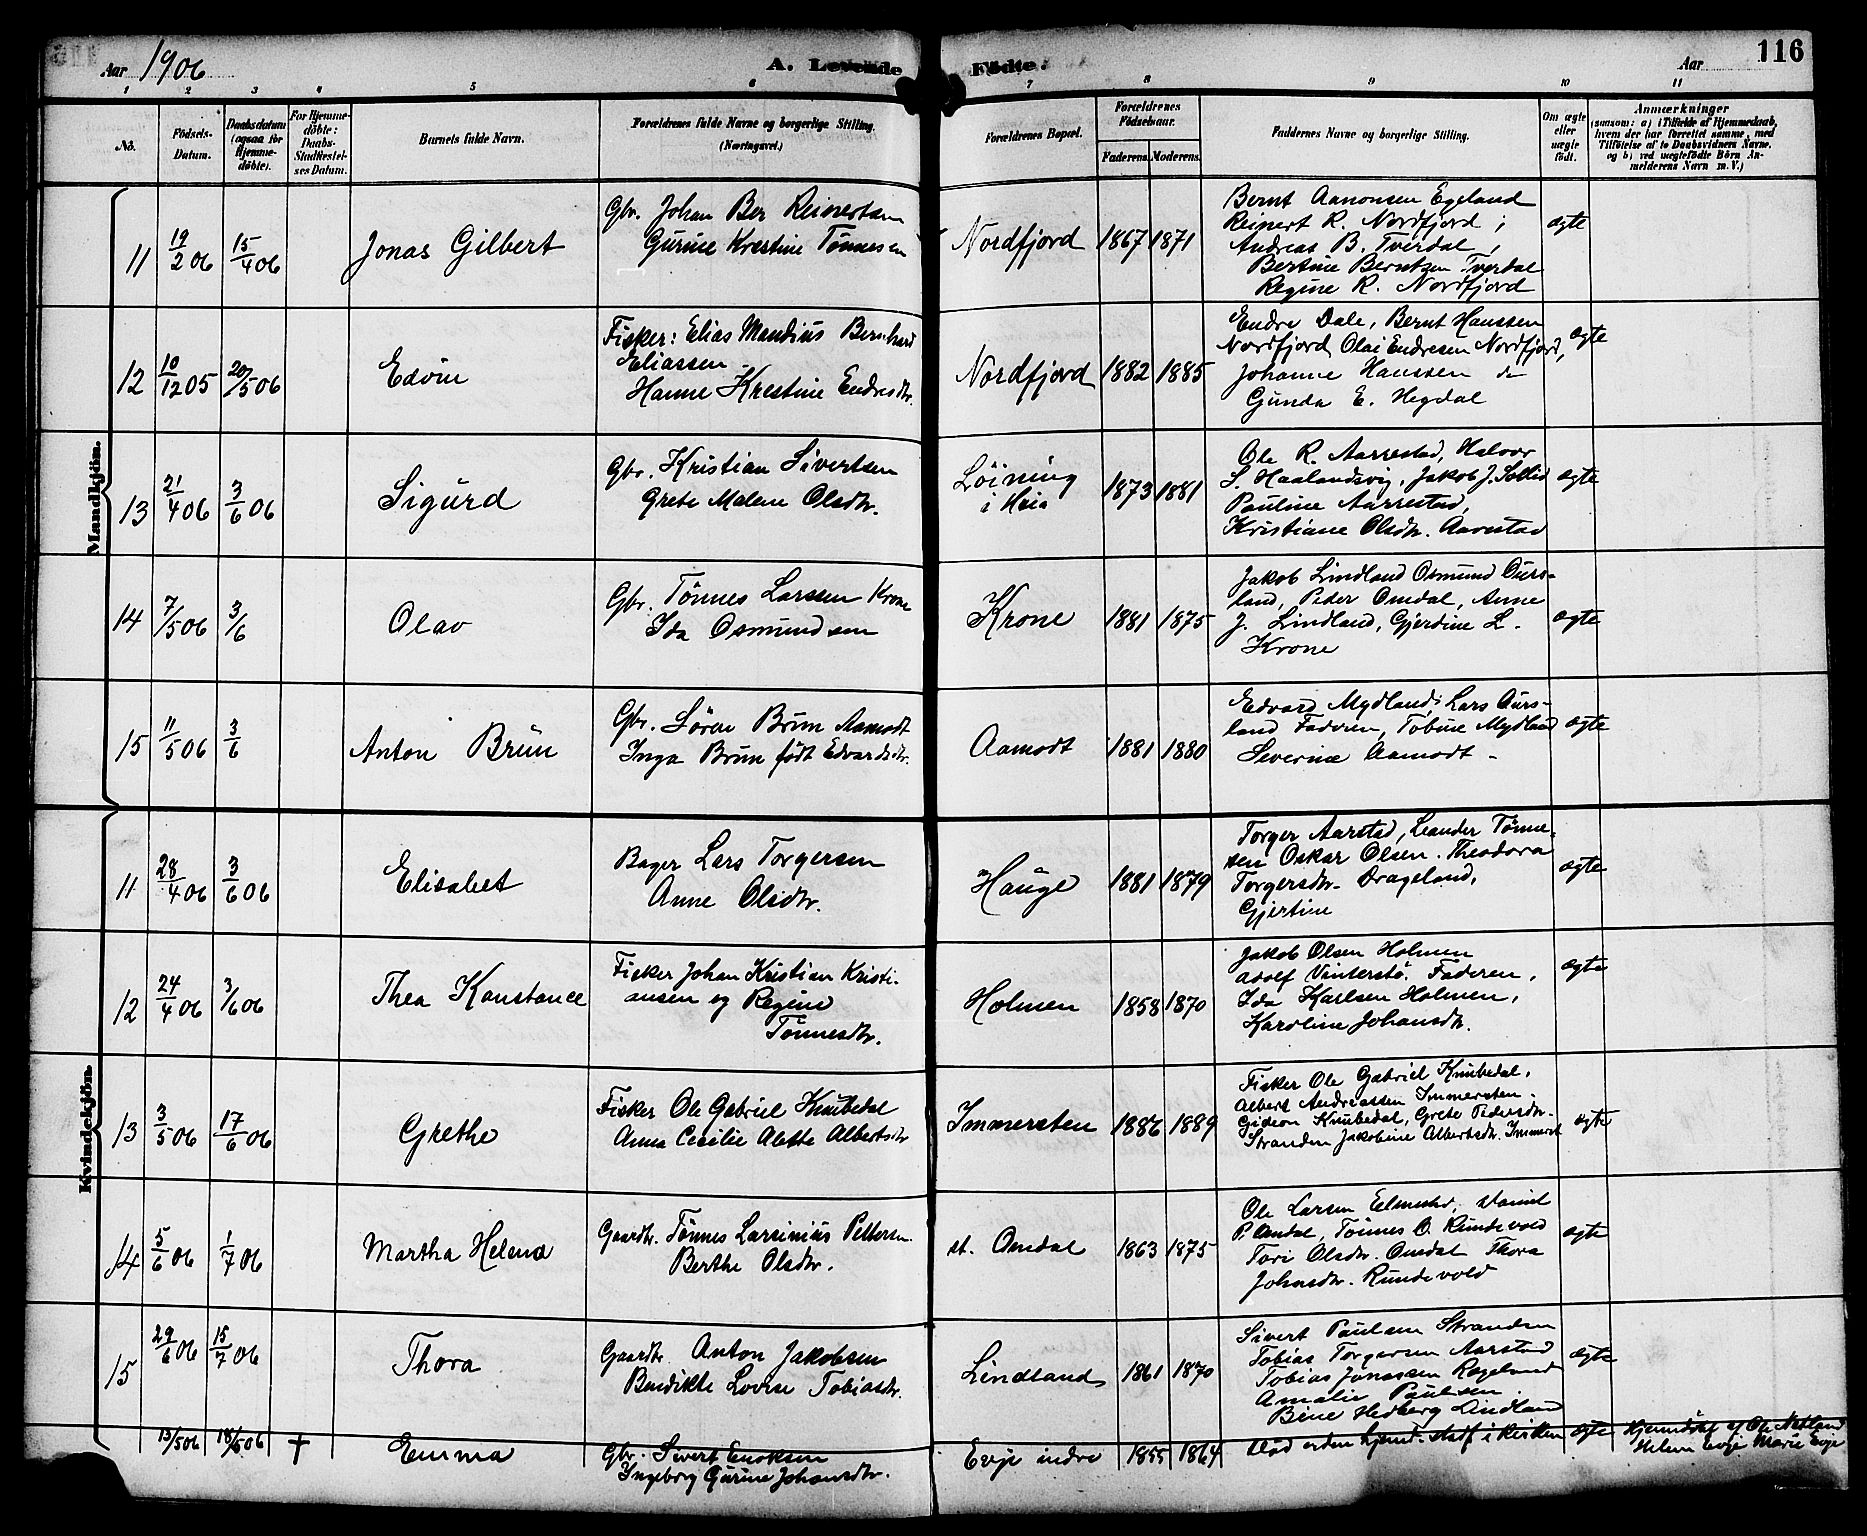 Aar 1906
A. Levende Fødte.
Aar
116
1 2 3 4 5 6 7 8 9 10 11
No.
Fødsels-
Datum.
Daabsdatum
(ogsaa for
Hjemme-
døbte).
For Hjemme-
døbte:
Daabs-
Stadfæstel-
ses Datum.
Barnets fulde Navn.
Forældrenes fulde Navne og borgerlige Stilling.
(Næringsvei.)
Forældrenes Bopæl.
Forældrenes
Fødselsaar.
Faderens. Moderens.
Faddernes Navne og borgerlige Stilling.
Om ægte
eller
uægte
født.
Anmærkninger
(saasom: a) i Tilfælde af Hjemmedaab,
hvem der har forrettet samme, med
Tilføielse af to Daabsvidners Navne,
og b) ved uægtefødte Børn An-
melderens Navn m. V.)
Mandkjøn.
11 19/2 06 15/4 06 Jonas Gilbert
Gbr. Johan Ber Reinertsen
Gurine Krestine Tønnesen
Nordfjord 1867 1871
Bernt Aanonsen Egeland
Reinert R. Nordfjord ;
Andreas B. Tverdal ,
Bertine Berntsen Tverdal
Regine R. Nordfjord
ægte
12 10/12 05 20/5 06 Edvin
Fisker: Elias Mandius Bernhard
Eliassen
Hanne Krestine Endresdtr.
Nordfjord 1882 1885
Endre Dale, Bernt Hanssen
Nordfjord Olai Endresen Nordfjord,
Johanne Hanssen do
Gunda E. Hegdal
ægte
13 21/4 06 3/6 06 Sigurd
Gbr. Kristian Sivertsen
Grete Malene Olsdtr.
Løining
i Heia
1873 1881
Ole R. Aarrestad, Halvor
S. Haalandsvig, Jakob J. Sollid
Pauline Aarrestad,
Kristiane Olsdtr. Aarestad
ægte
14 7/5 06 3/6 Olav
Gbr. Tønnes Larssen Krone
Ida Osmundsen
Krone 1881 1875
Jakob Lindland Osmund Ours-
land, Peder Omdal, Anne
J. Lindland, Gjerdine L.
Krone
ægte
15 11/5 06 3/6 Anton Brun
Gbr. Søren Brun Aamodt
Inga Brun født Edvardsdtr.
Aamodt 1881 1880
Edvard Mydland, Lars Ours-
land Faderen, Tobine Mydland
Severine Aamodt -
ægte
Kvindekjøn.
11 28/4 06 3/6 06 Elisabet
Bager Lars Torgersen
Anne Olsdtr.
Hauge 1881 1879
Torger Aarstad, Leander Tønne-
sen Oskar Olsen. Theodora
Torgersdtr. Drageland,
Gjertine
ægte
12 24/4 06 3/6 06 Thea Konstance
Fisker Johan Kristian Kristi-
ansen og Regine
Tønnesdtr.
Holmen 1858 1870
Jakob Olsen Holmen
Adolf Vinterstø. Faderen,
Ida Karlsen Holmen,
Karoline Johansdtr.
ægte
13 3/5 06 17/6 06 Grethe
Fisker Ole Gabriel Knubedal
Anna Cecilie Alette Albertsdtr
Immersten 1886 1889
Fisker Ole Gabriel Knubedal,
Albert Andreassen Immersten.
Gideon Knubedal, Grete Pedersdtr.
Stranden Jakobine Albertsdtr. Immerst
ægte
14 5/6 06 1/7 06 Martha Helene
Gaardbr. Tønnes Larsinius Pettersen
Berthe Olsdtr.
st. Omdal 1863 1875
Ole Larsen Eelmestad, Daniel
P. Omdal, Tønnes O. Rundevold
Tori Olsdtr. Omdal Thora
Johnsdtr. Rundevold
ægte
15 29/6 06 15/7 06 Thora
Gaardbr. Anton Jakobsen
Bendikte Lovise Tobiasdtr.
Lindland 1861 1870
Sivert Paulsen Stranden
Tobias Torgersen Aarstad
Tobias Jonassen Rageland
Amalie Paulsen.
Bine Hedberg Lindland
ægte
13/5 06 18/5 06 † Emma
Gbr. Sivert Enoksen
Ingeborg Gurine Johansdtr.
Evje indre 1855 1864
død uden hjemd. stadf i kirken
ægte
Hjemdøbt af Ole Netland
Helene Evje Marie Evje